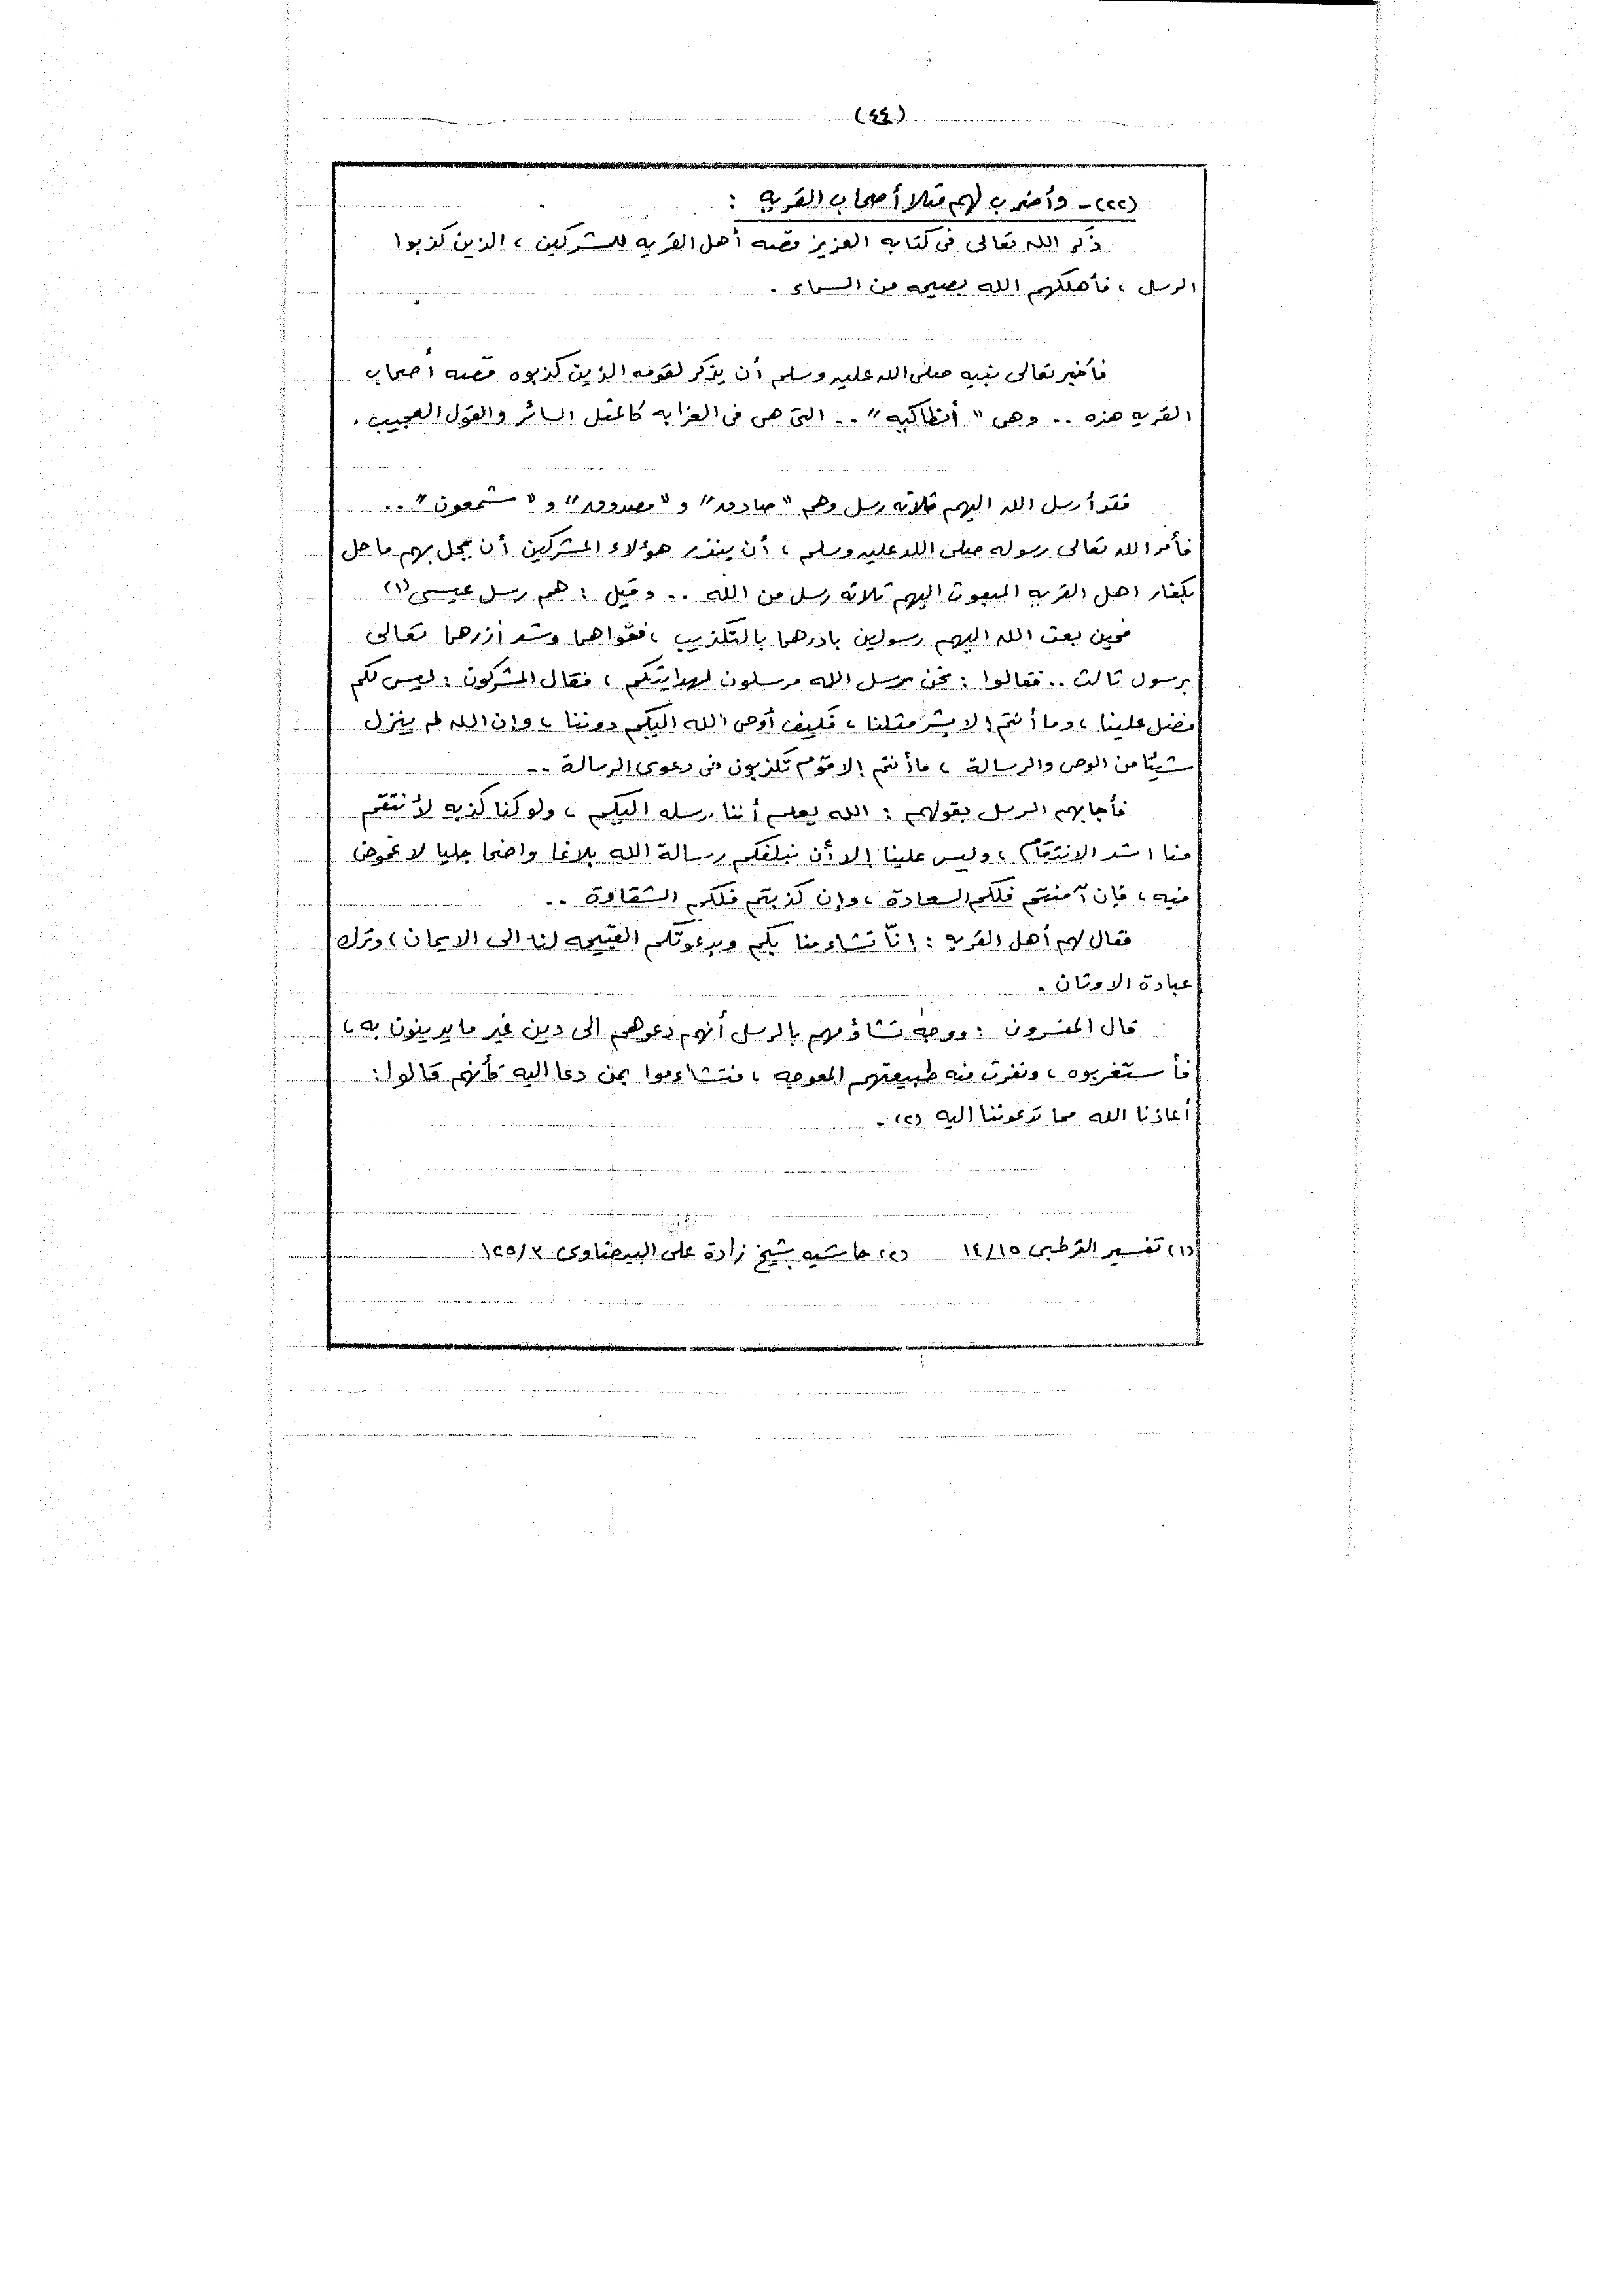 (٤٤)
(٢٢) - وأضرب لهم مثلا أصحاب القريه :
ذكر الله تعالى فى كتابه العزيز قصه أهل القريه للمشركين ، الذين كذبوا
الرسل ، فأهلكهم الله بصيحه من السماء .
فأخبر تعالى نبيه صلى الله عليه وسلم أن يذكر لقومه الذين كذبوه قصه أصحاب
القريه هذه .. وهى " أنطاكيه " .. التى هى فى الغرابه كالمثل السائر والقول العجيب .
فقد أرسل الله اليهم ثلاثه رسل وهم " صادق " و " مصدوق " و " شمعون " ..
فأمر الله تعالى رسوله صلى الله عليه وسلم ، أن ينذر هؤلاء المشركين أن يحل بهم ما حل
بكفار اهل القريه المبعوث اليهم ثلاثه رسل من الله .. وقيل : هم رسل عيسى (١)
فحين بعث الله اليهم رسولين بادرهما بالتكذيب ، فقواهما وشد أزرهما تعالى
برسول ثالث .. فقالوا : نحن رسل الله مرسلون لهدايتكم ، فقال المشركون : ليس لكم
فضل علينا ، وما أنتم إلا بشر مثلنا ، فكيف أوحى الله اليكم دوننا ، وإن الله لم ينزل
شيئا من الوحى والرسالة ، ما أنتم إلا قوم تكذبون فى دعوى الرسالة ..
فأجابهم الرسل بقولهم : الله يعلم أننا رسله اليكم ، ولو كنا كذبه لأنتقم
منا اشد الانتقام ، وليس علينا إلا أن نبلغكم رسالة الله بلاغا واضحا جليا لا غموض
فيه ، فإن آمنتم فلكم السعادة ، وإن كذبتم فلكم الشقاوة ..
فقال لهم أهل القريه : إنّا تشاءمنا بكم وبدعوتكم القبيحه لنا الى الايمان ، وترك
عبادة الاوثان .
قال المفسرون : ووجه تشاؤمهم بالرسل أنهم دعوهم الى دين غير ما يدينون به ،
فأستغربوه ، ونفرت منه طبيعتهم المعوجه ، فتشاءموا بمن دعا اليه كأنهم قالوا :
أعاذنا الله مما تدعوننا اليه (٢) .
(١) تفسير القرطبى ١٤/١٥ (٢) حاشيه شيخ زادة على البيضاوى ١٢٥/٣